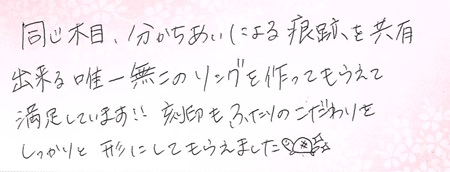 同じ木目、分かちあいによる痕跡を共有
出来る唯一無二のリングを作ってもらえて
満足しています!! 刻印もふたりのこだわりを
しっかりと形にしてもらえました